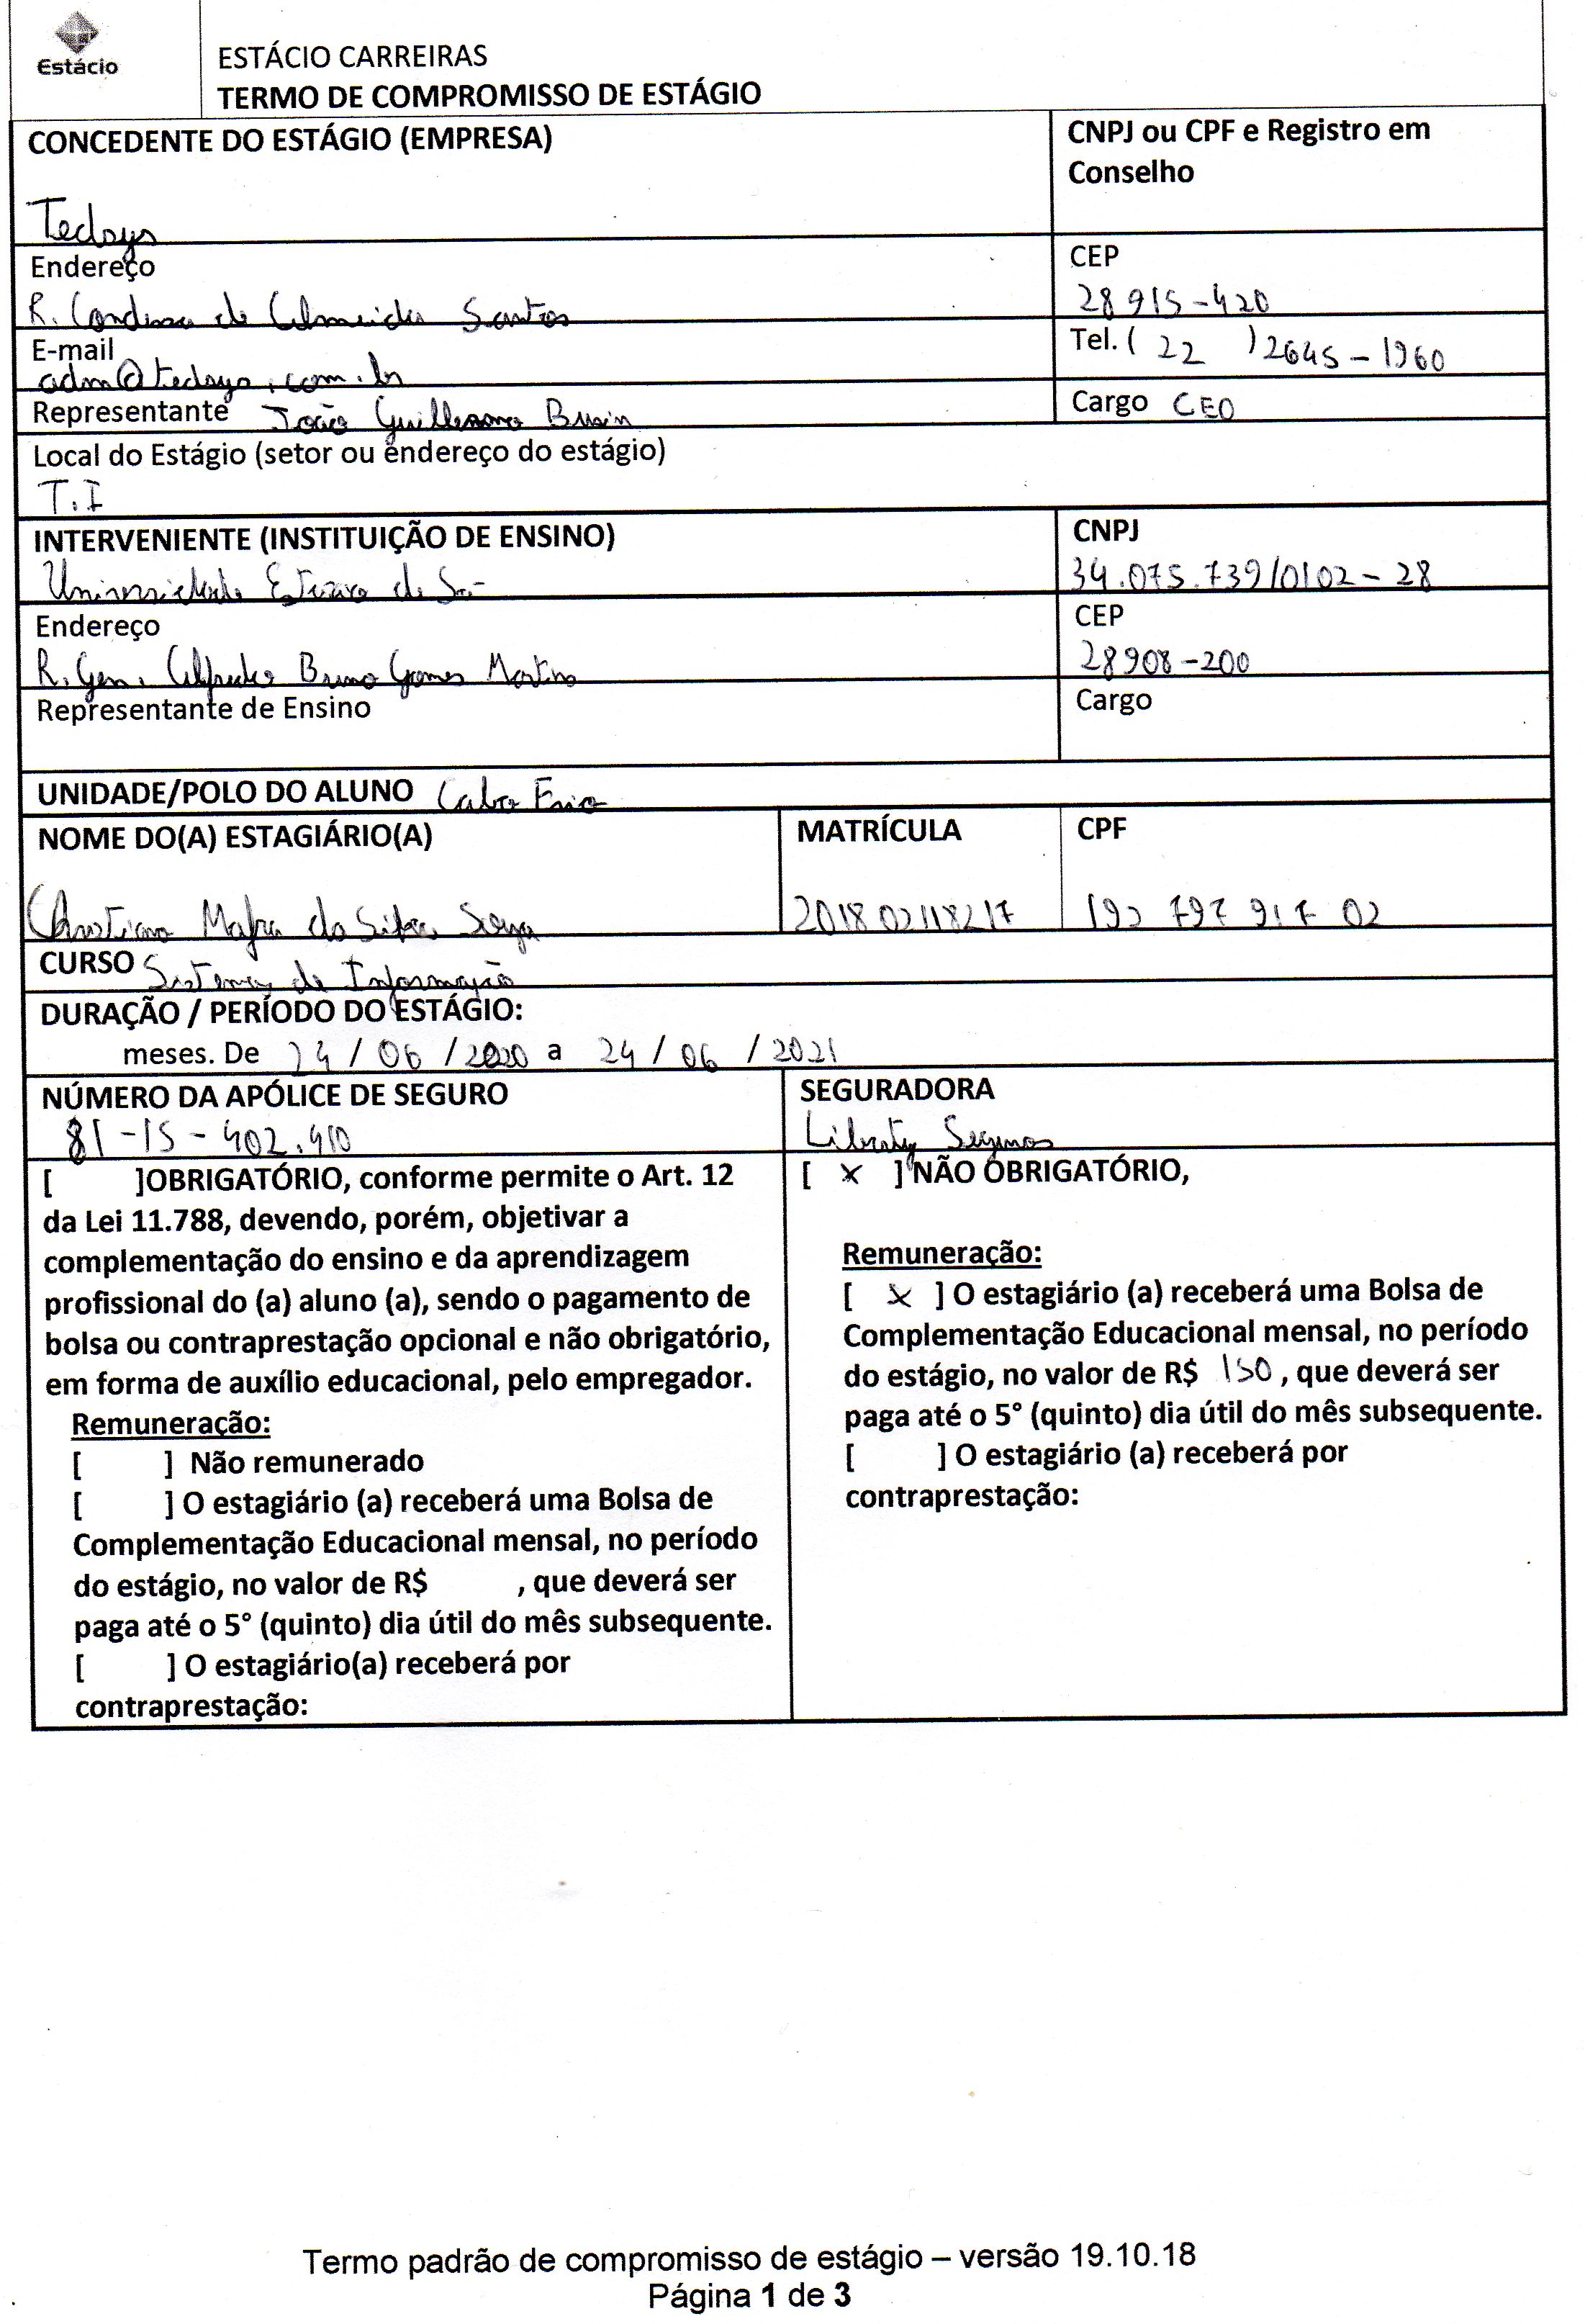 Estácio
ESTÁCIO CARREIRAS
TERMO DE COMPROMISSO DE ESTÁGIO
CONCEDENTE DO ESTÁGIO (EMPRESA)
CNPJ ou CPF e Registro em
Conselho
Tecsys
Endereço
CEP
R. de Almeida Santos
28915-420
E-mail
Tel. ( 22 ) 2645-1960
adm@tecsys.com.br
Representante João Guillermo
Cargo CEO
Local do Estágio (setor ou endereço do estágio)
T.I
INTERVENIENTE (INSTITUIÇÃO DE ENSINO)
CNPJ
Universidade Estácio de Sá
34.075.739/0102-28
Endereço
CEP
R. Gen. Alfredo Bruno Gomes Martins
28908-200
Representante de Ensino
Cargo
UNIDADE/POLO DO ALUNO Cabo Frio
NOME DO(A) ESTAGIÁRIO(A)
MATRÍCULA
CPF
Mafra da Silva
201802118217
797 917 02
CURSO Sistemas de Informação
DURAÇÃO / PERÍODO DO ESTÁGIO:
meses. De 24 / 06 / 2020 a 24 / 06 / 2021
NÚMERO DA APÓLICE DE SEGURO
SEGURADORA
81-15-402.410
Liberty Seguros
[ ]OBRIGATÓRIO, conforme permite o Art. 12
da Lei 11.788, devendo, porém, objetivar a
complementação do ensino e da aprendizagem
profissional do (a) aluno (a), sendo o pagamento de
bolsa ou contraprestação opcional e não obrigatório,
em forma de auxílio educacional, pelo empregador.
Remuneração:
[ ] Não remunerado
[ ] O estagiário (a) receberá uma Bolsa de
Complementação Educacional mensal, no período
do estágio, no valor de R$ , que deverá ser
paga até o 5° (quinto) dia útil do mês subsequente.
[ ] O estagiário(a) receberá por
contraprestação:
[ x ] NÃO OBRIGATÓRIO,
Remuneração:
[ x ] O estagiário (a) receberá uma Bolsa de
Complementação Educacional mensal, no período
do estágio, no valor de R$ 150 , que deverá ser
paga até o 5° (quinto) dia útil do mês subsequente.
[ ] O estagiário (a) receberá por
contraprestação:
Termo padrão de compromisso de estágio – versão 19.10.18
Página 1 de 3